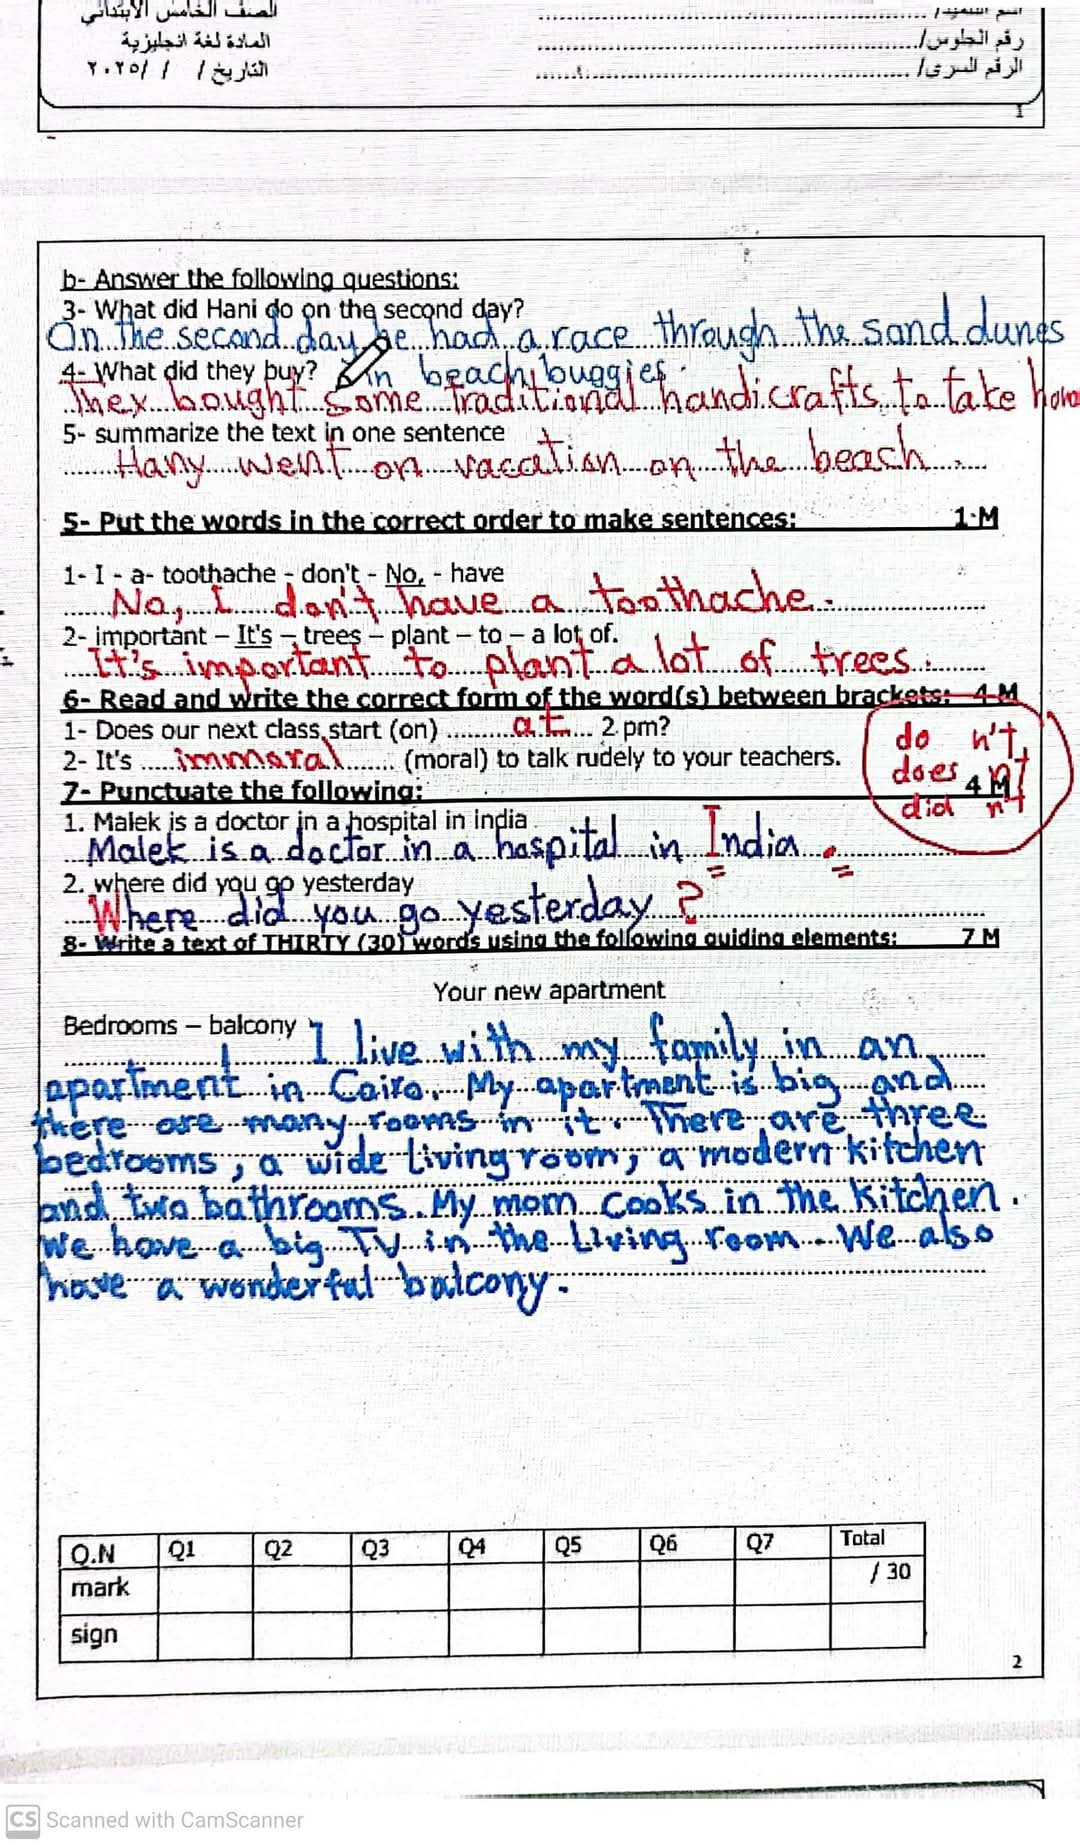 الصف الخامس الابتدائي
المادة لغة انجليزية
التاريخ / / /٢٠٢٥
اسم التلميذ/
رقم الجلوس/
الرقم السرى/
1
b- Answer the following questions:
3- What did Hani do on the second day?
On the second day he had a race through the sand dunes
in beach buggies.
4- What did they buy?
They bought some traditional handicrafts to take
5- summarize the text in one sentence
Hany went on vacation on the beach.
5- Put the words in the correct order to make sentences: 1·M
1- I - a- toothache - don't - No, - have
No, I don't have a toothache.
2- important – It's – trees – plant – to – a lot of.
It's important to plant a lot of trees.
6- Read and write the correct form of the word(s) between brackets: 4 M
1- Does our next class start (on) at 2 pm?
2- It's immoral (moral) to talk rudely to your teachers.
do n't
does n't
did n't
7- Punctuate the following: 4 M
1. Malek is a doctor in a hospital in india
Malek is a doctor in a hospital in India.
2. where did you go yesterday
Where did you go yesterday?
8- Write a text of THIRTY (30) words using the following guiding elements: 7 M
Your new apartment
Bedrooms – balcony
I live with my family in an
apartment in Cairo. My apartment is big and
there are many rooms in it. There are three
bedrooms, a wide living room, a modern kitchen
and two bathrooms. My mom cooks in the kitchen.
We have a big TV in the Living room. We also
have a wonderful balcony.
Q.N Q1 Q2 Q3 Q4 Q5 Q6 Q7 Total
mark / 30
sign
2
CS Scanned with CamScanner